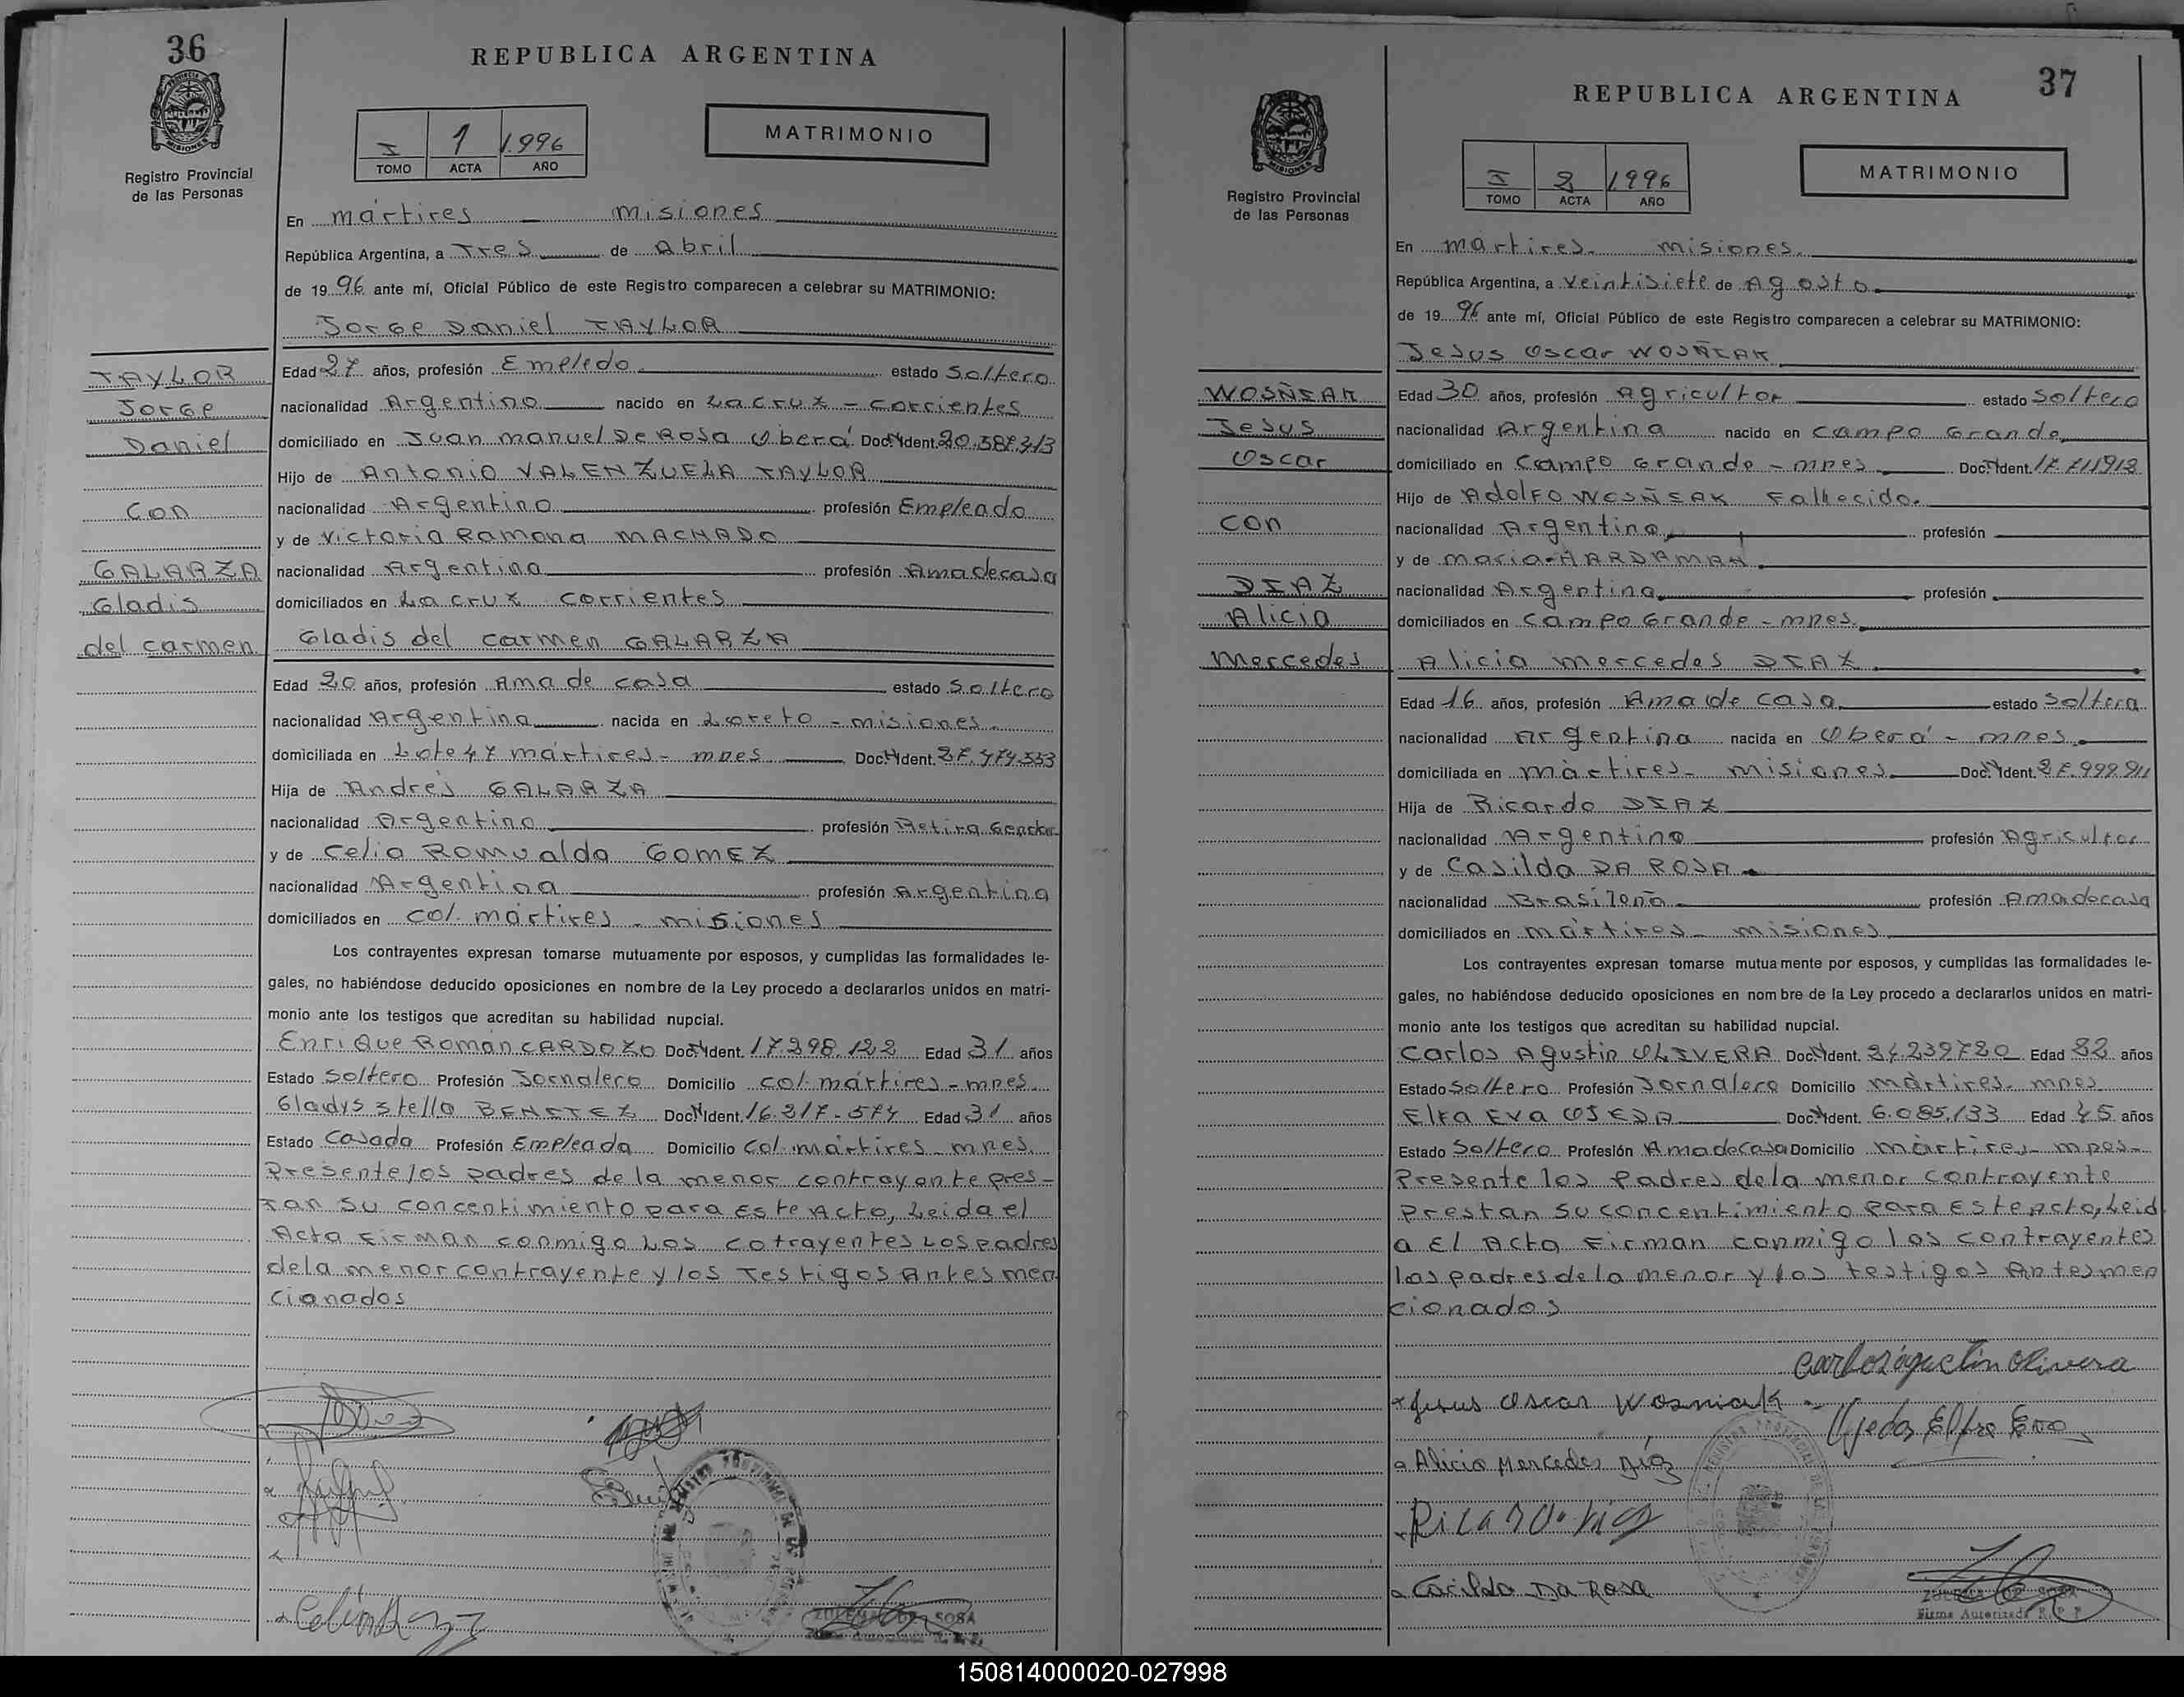 36
REPUBLICA ARGENTINA
I 1 1.996
TOMO ACTA AÑO
MATRIMONIO
Registro Provincial
de las Personas
En mártires - misiones
República Argentina, a Tres de Abril
de 1996 ante mí, Oficial Público de este Registro comparecen a celebrar su MATRIMONIO:
Jorge Daniel TAYLOR
TAYLOR
Jorge
Daniel
con
GALARZA
Gladis
del carmen
Edad 27 años, profesión Empledo estado Soltero
nacionalidad Argentino nacido en La cruz - corrientes
domiciliado en Juan manuel De Rosa Oberá Doc. Ident. 20.587.313
Hijo de Antonio VALENZUELA TAYLOR
nacionalidad Argentino profesión Empleado
y de Victoria Ramona MACHADO
nacionalidad Argentina profesión Amadecasa
domiciliados en La cruz corrientes
Gladis del carmen GALARZA
Edad 20 años, profesión Ama de casa estado Soltero
nacionalidad Argentina nacida en Loreto - misiones
domiciliada en Lote 47 mártires - mnes Doc. Ident. 27.474.533
Hija de Andrés GALARZA
nacionalidad Argentino profesión Retira
y de Celia Romualda GOMEZ
nacionalidad Argentina profesión Argentina
domiciliados en Col. mártires - misiones
Los contrayentes expresan tomarse mutuamente por esposos, y cumplidas las formalidades le-
gales, no habiéndose deducido oposiciones en nombre de la Ley procedo a declararlos unidos en matri-
monio ante los testigos que acreditan su habilidad nupcial.
Enrique Roman CARDOZO Doc. Ident. 17.298.122 Edad 31 años
Estado Soltero Profesión Jornalero Domicilio col. mártires - mnes
Gladys Stella BENITEZ Doc. Ident. 16.217.574 Edad 31 años
Estado Casada Profesión Empleada Domicilio Col. mártires - mnes.
Presente los padres de la menor contrayente pres-
tan su concentimiento para Este Acto, Leida el
Acta Firman conmigo Los cotrayentes Los padres
dela menor contrayente y los Testigos Antes men
cionados
37
REPUBLICA ARGENTINA
I 2 1996
TOMO ACTA AÑO
MATRIMONIO
Registro Provincial
de las Personas
En mártires - misiones
República Argentina, a Veintisiete de Agosto
de 1996 ante mí, Oficial Público de este Registro comparecen a celebrar su MATRIMONIO:
Jesus Oscar WOSÑIAK
WOSÑIAK
Jesus
Oscar
con
DIAZ
Alicia
Mercedes
Edad 30 años, profesión Agricultor estado Soltero
nacionalidad Argentina nacido en Campo Grande
domiciliado en Campo Grande - mnes Doc. Ident. 17.711918
Hijo de Adolfo WOSÑIAK Fallecido.
nacionalidad Argentino profesión
y de maria HARDAMAN
nacionalidad Argentina profesión
domiciliados en Campo Grande - mnes.
Alicia mercedes DIAZ
Edad 16 años, profesión Ama de casa estado Soltera
nacionalidad Argentina nacida en Oberá - mnes
domiciliada en mártires - misiones Doc. Ident. 27.999.911
Hija de Ricardo DIAZ
nacionalidad Argentino profesión Agricultor
y de Casilda DA ROSA
nacionalidad Brasileña profesión Amadecasa
domiciliados en mártires - misiones
Los contrayentes expresan tomarse mutuamente por esposos, y cumplidas las formalidades le-
gales, no habiéndose deducido oposiciones en nombre de la Ley procedo a declararlos unidos en matri-
monio ante los testigos que acreditan su habilidad nupcial.
Carlos Agustin OLIVERA Doc. Ident. 24.239720 Edad 22 años
Estado Soltero Profesión Jornalero Domicilio mártires - mnes
Elfa Eva OJEDA Doc. Ident. 6.085.133 Edad 45 años
Estado Soltero Profesión Amadecasa Domicilio mártires - mnes -
Presente los Padres dela menor contrayente
prestan su concentimiento para Este Acto, Leid
a El Acta Firman conmigo los contrayentes
los padres de la menor y los testigos Antes men
cionados
Carlos Agustin Olivera
Jesus Oscar Wosniak
Ojeda Elfa Eva
Alicia Mercedes Díaz
Ricardo Diaz
Casilda Da Rosa
ZULEMA DE SOSA
Firma Autorizada R. P. P.
150814000020-027998